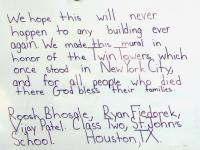 We hope this will never
happen to any building ever
again. We made this mural in
honor of the Twin Towers, which
once stood in New York City,
and for all people who died
there God bless their families.
Roosh Bhosale, Ryan Fiedorek,
Vijay Patel. Class Two, St. John's
School. Houston, TX.